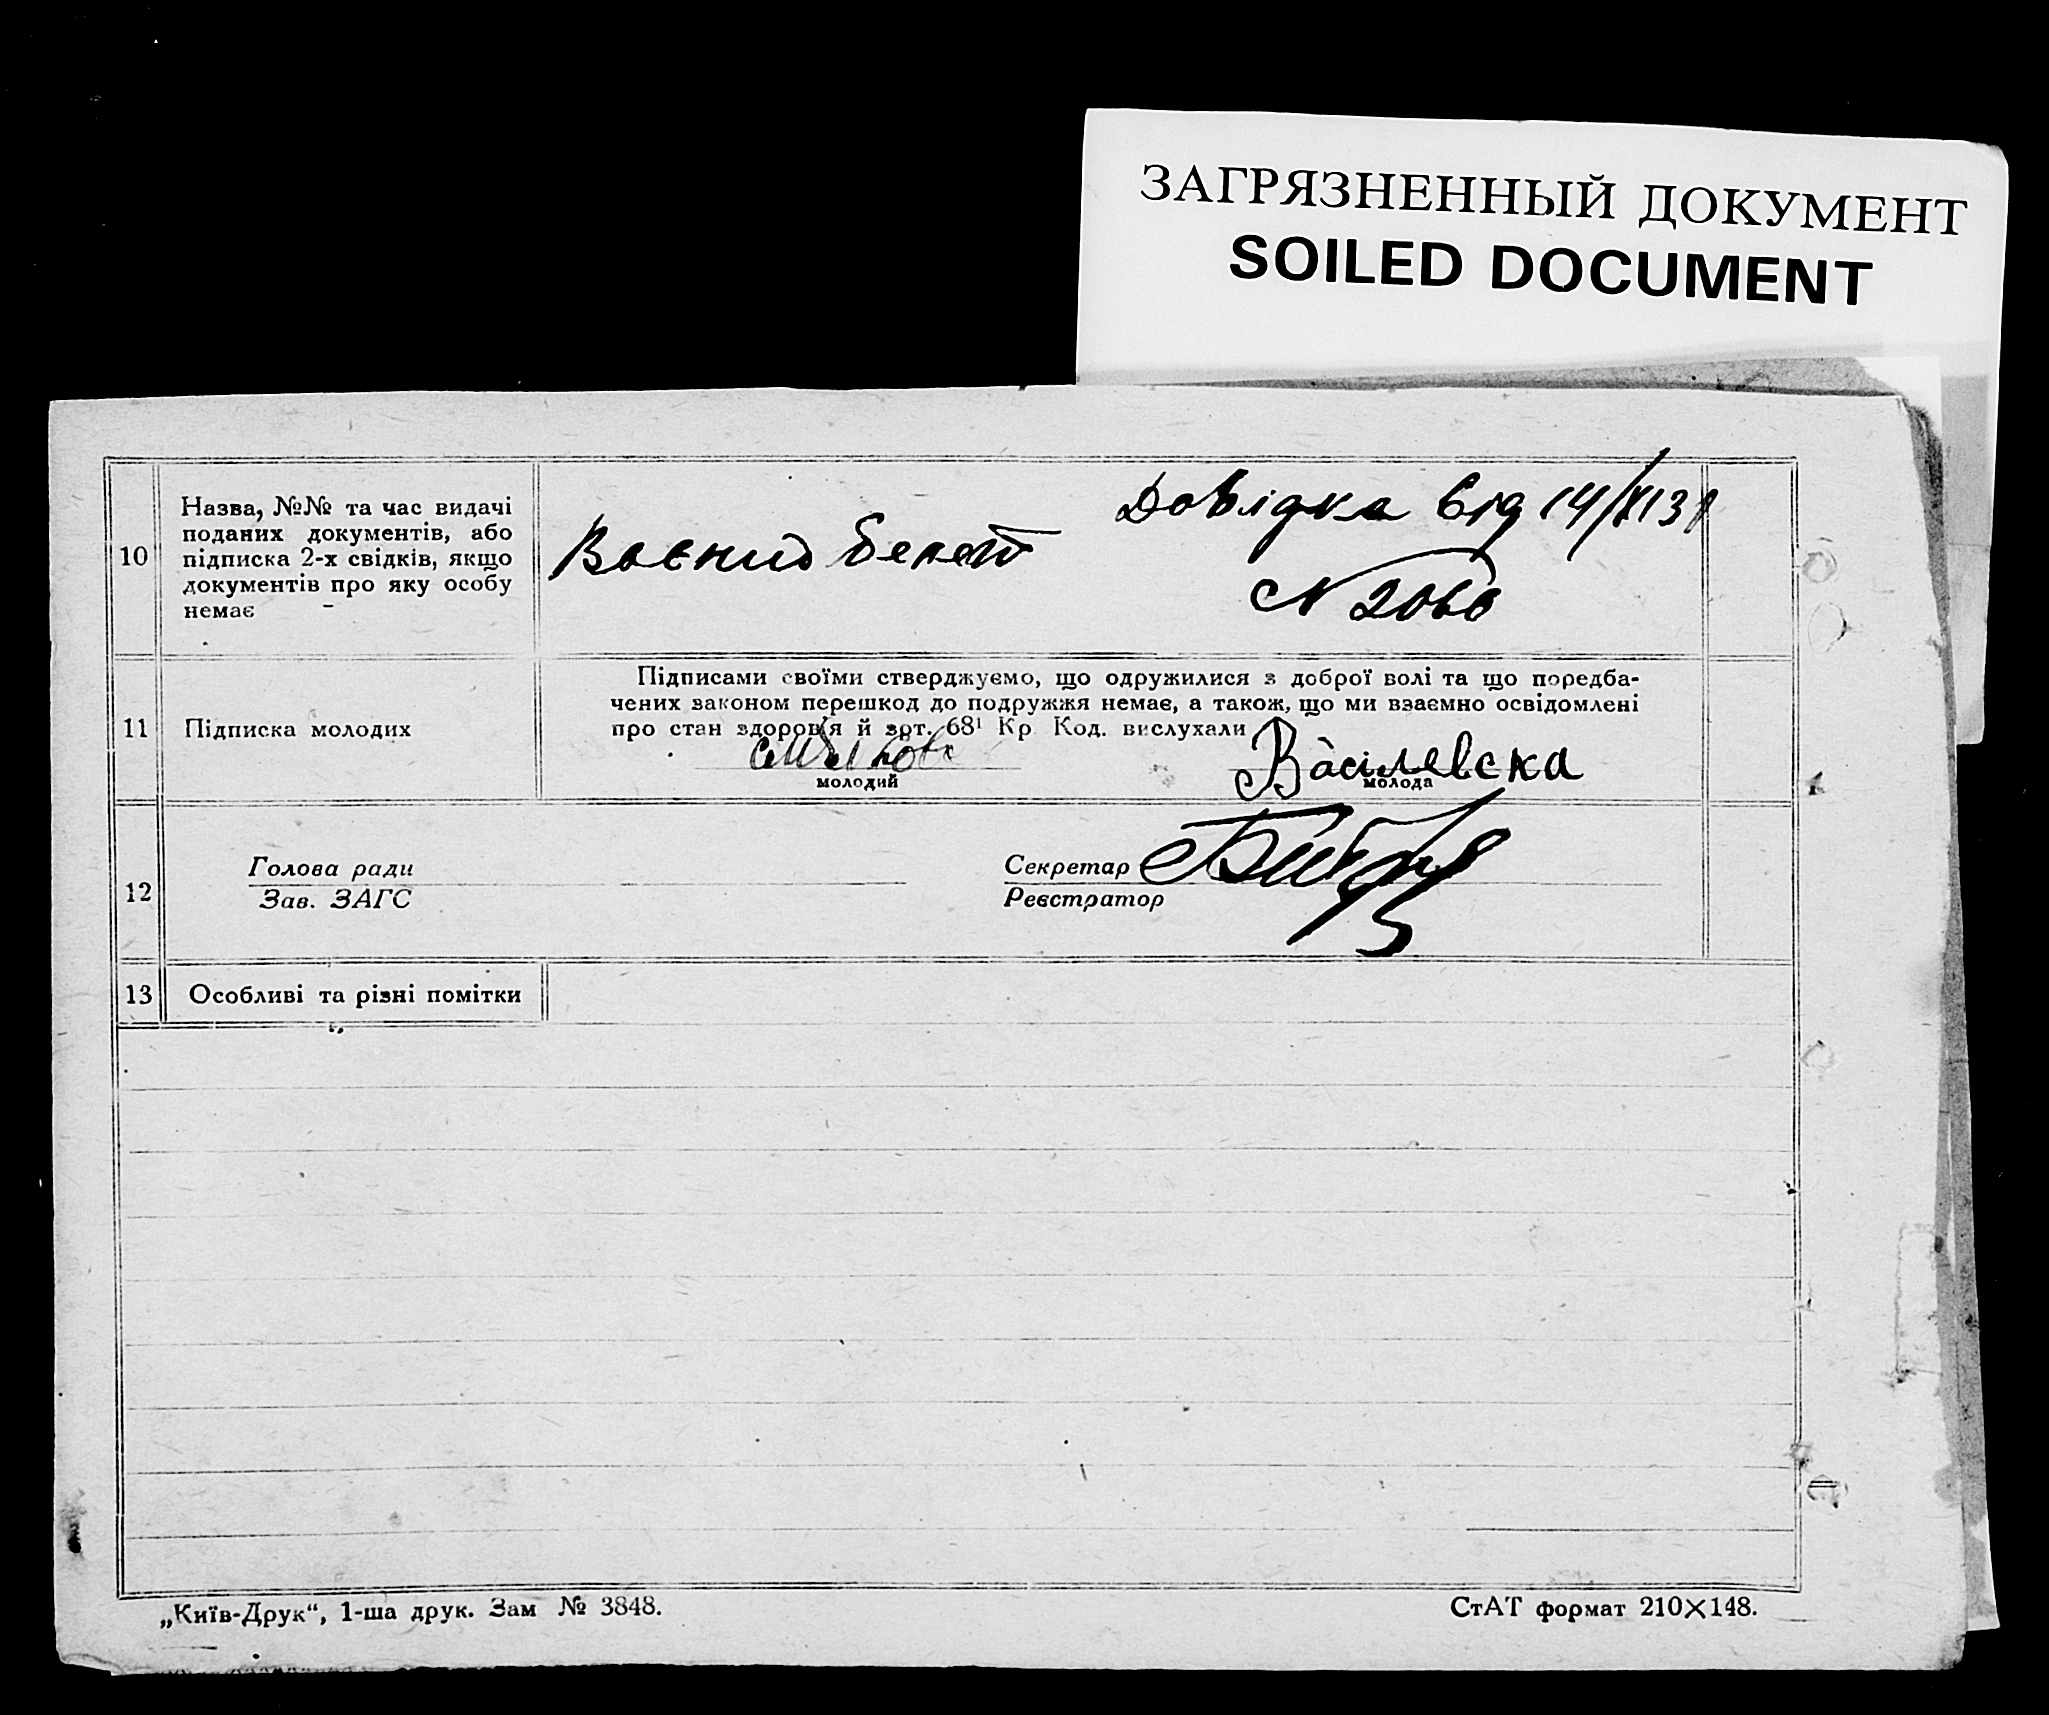 ЗАГРЯЗНЕННЫЙ ДОКУМЕНТ
SOILED DOCUMENT
10
Назва, №№ та час видачі
поданих документів, або
підписка 2-х свідків, якщо
документів про яку особу
немає -
Воєний белет
Довідка від 14/XI 31
N 2060
11
Підписка молодих
Підписами своїми стверджуємо, що одружилися з доброї волі та що поредба-
чених законом перешкод до подружжя немає, а також, що ми взаємно освідомлені
про стан здоров'я й зрт. 68¹ Кр Код. вислухали
молодий
Васілевска
молода
12
Голова ради
Зав. ЗАГС
Секретар
Реєстратор
13
Особливі та різні помітки
„Київ-Друк“, 1-ша друк. Зам № 3848.
СтАТ формат 210×148.